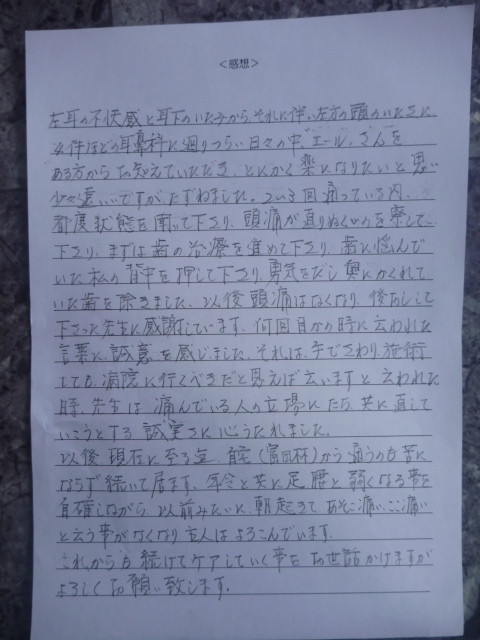 <感想>
左耳の不快感と耳下のいたみから、それに伴い左方の頭のいたさに
4件ほどの耳鼻科に廻りつらい日々の中"エール"さんを
ある方からお知えていただき、とにかく楽になりたいと思い
少々遠いですが、たずねました。2い3回通っている内、
都度状態を聞いて下さり、頭痛が直りぬくいのを察して
下さり、まずは歯の治療を進めて下さり、歯に悩んで
いた私の背中を押して下さり、勇気をだし奥にかくれて
いた歯を除きました。以後頭痛はなくなり、後おしして
下さった先生に感謝しています。何回目かの時に云われた
言葉に誠意を感じました。それは、手でさわり施術
してても病院に行くべきだと思えば云いますと云われた
時、先生は痛んでいる人の立場にたち、共に直して
いこうとする誠実さに心うたれました。
以後現在に至る迄、自宅()から通うのも苦に
ならず続いて居ます。年令と共に足腰と弱くなる事を
自確しながら、以前みたいに、朝起きてあそこ痛いここ痛い
と云う事がなくなり主人はよろこんでいます。
これからも続けてケアしていく事をお世話かけますが
よろしくお願い致します。